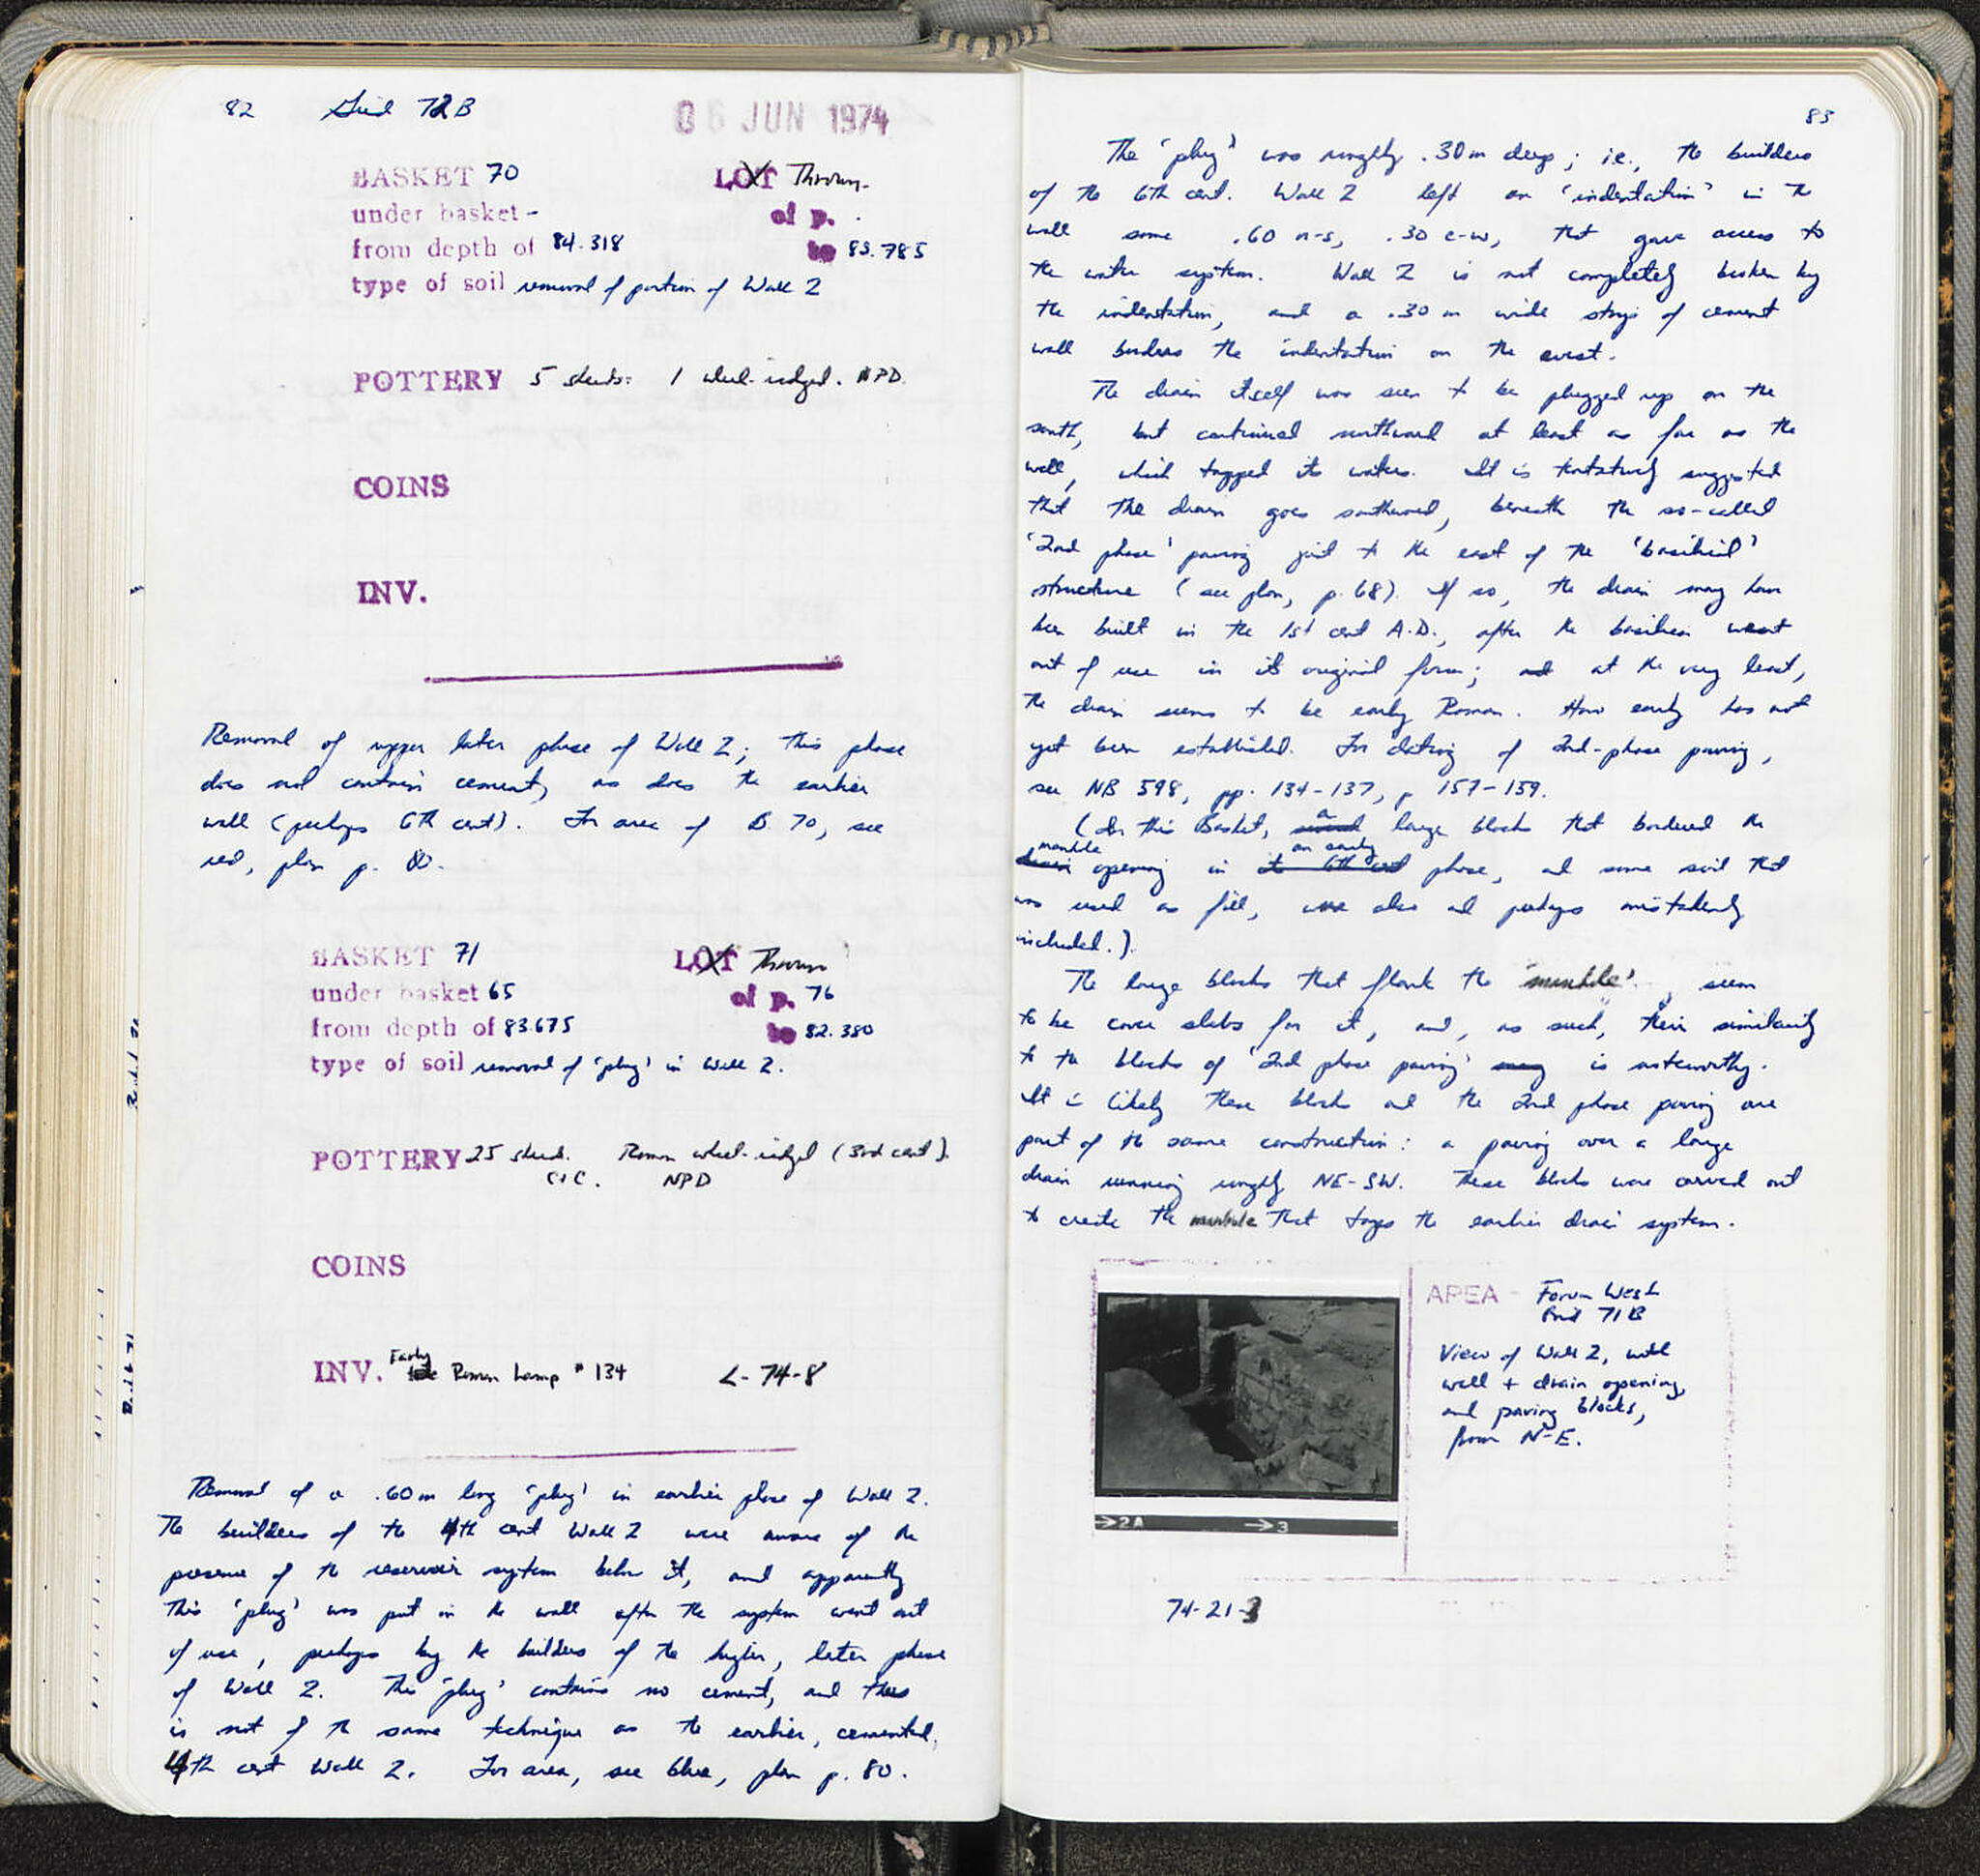 82 Grid 72B 06 JUN 1974
BASKET 70 LOT Thrown.
under basket - of p.
from depth of 84.318 to 83.785
type of soil removal of portion of Wall 2
POTTERY 5 sherds: 1 wheel-ridged. NPD.
COINS
INV.
Removal of upper later phase of Wall 2; this phase
does not contain cement, as does the earlier
wall (perhaps 6th cent). For area of B. 70, see
red, plan p. 80.
BASKET 71 LOT Thrown
under basket 65 of p. 76
from depth of 83.675 to 82.380
type of soil removal of 'plug' in Wall 2.
POTTERY 25 sherds. Roman wheel-ridged (3rd cent).
C+C. NPD
COINS
INV. Early Roman Lamp # 134 L-74-8
Removal of a .60m long 'plug' in earlier phase of Wall 2.
The builders of the 4th cent Wall 2 were aware of the
presence of the reservoir system below it, and apparently
this 'plug' was put in the wall after the system went out
of use, perhaps by the builders of the higher, later phase
of Wall 2. This 'plug' contains no cement, and thus
is not of the same technique as the earlier, cemented,
4th cent Wall 2. For area, see blue, plan p. 80.
83
The 'plug' was roughly .30m deep; i.e., the builders
of the 6th cent. Wall 2 left an 'indentation' in the
wall some .60 n-s, .30 e-w, that gave access to
the water system. Wall 2 is not completely broken by
the indentation, and a .30 m wide strip of cement
wall borders the indentation on the west.
The drain itself was seen to be plugged up on the
south, but continued northward at least as far as the
well, which tapped its waters. It is tentatively suggested
that the drain goes southward, beneath the so-called
'2nd phase' paving just to the east of the 'basilical'
structure (see plan, p. 68). If so, the drain may have
been built in the 1st cent A.D., after the basilica went
out of use in its original form; and at the very least,
the drain seems to be early Roman. How early has not
yet been established. For dating of 2nd-phase paving,
see NB 598, pp. 134-137, p 157-159.
(In this Basket, several a large blocks that bordered the
drain manhole opening in its 6th cent an early phase, and some soil that
was used as fill, were also and perhaps mistakenly
included.).
The large blocks that flank the 'manhole' seem
to be cover slabs for it, and, as such, their similarity
to the blocks of '2nd phase paving' may is noteworthy.
It is likely these blocks and the 2nd phase paving are
part of the same construction: a paving over a large
drain running roughly NE-SW. These blocks were carved out
to create the manhole that taps the earlier drain system.
AREA - Forum West
Grid 71B
View of Wall 2, with
well + drain opening,
and paving blocks,
from N-E.
→2A →3
74-21-3